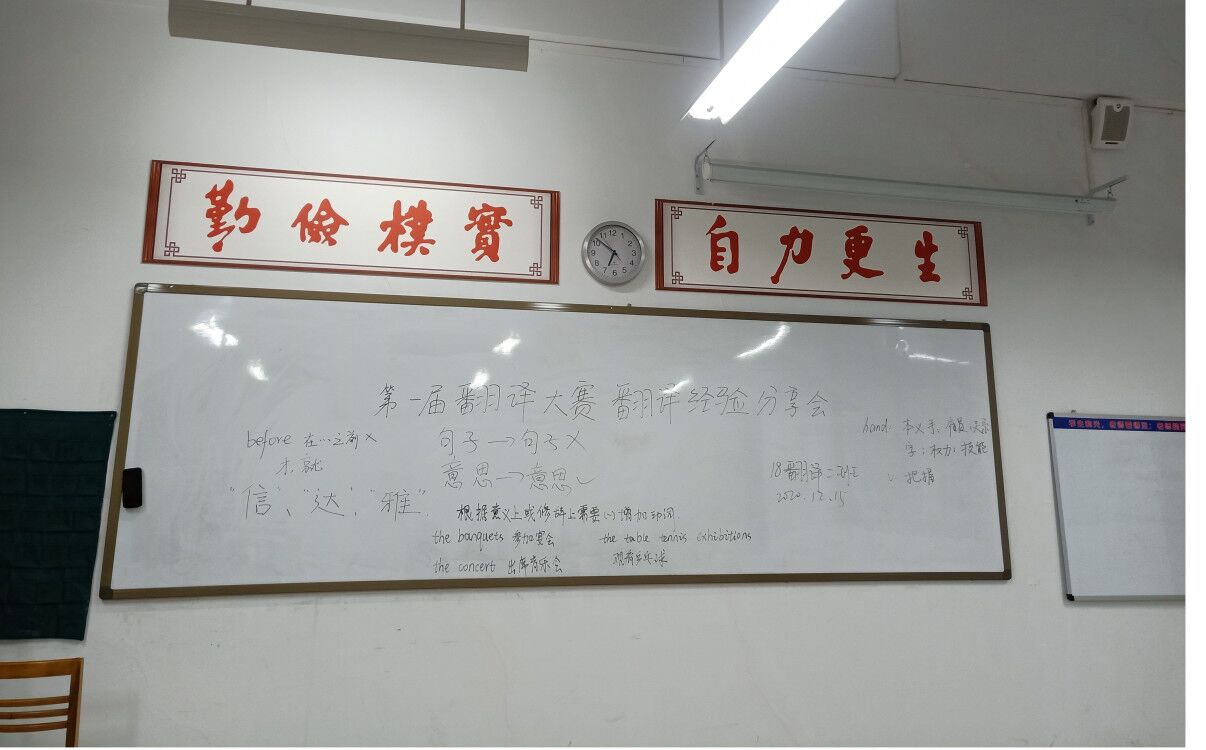 勤儉樸實
自力更生
12 1 2 3 4 5 6 7 8 9 10 11
第一届翻译大赛 翻译经验分享会
before 在…之前 ×
才 就
"信"、"达"、"雅"
句子→句子 ×
意思→意思 ✓
根据意义上或修辞上需要(一)增加动词
the banquets 参加宴会
the table tennis exhibitions
the concert 出席音乐会
观看乒乓球
18翻译二班
2020.12.15
hand: 本义手
字:权力;技能
把握